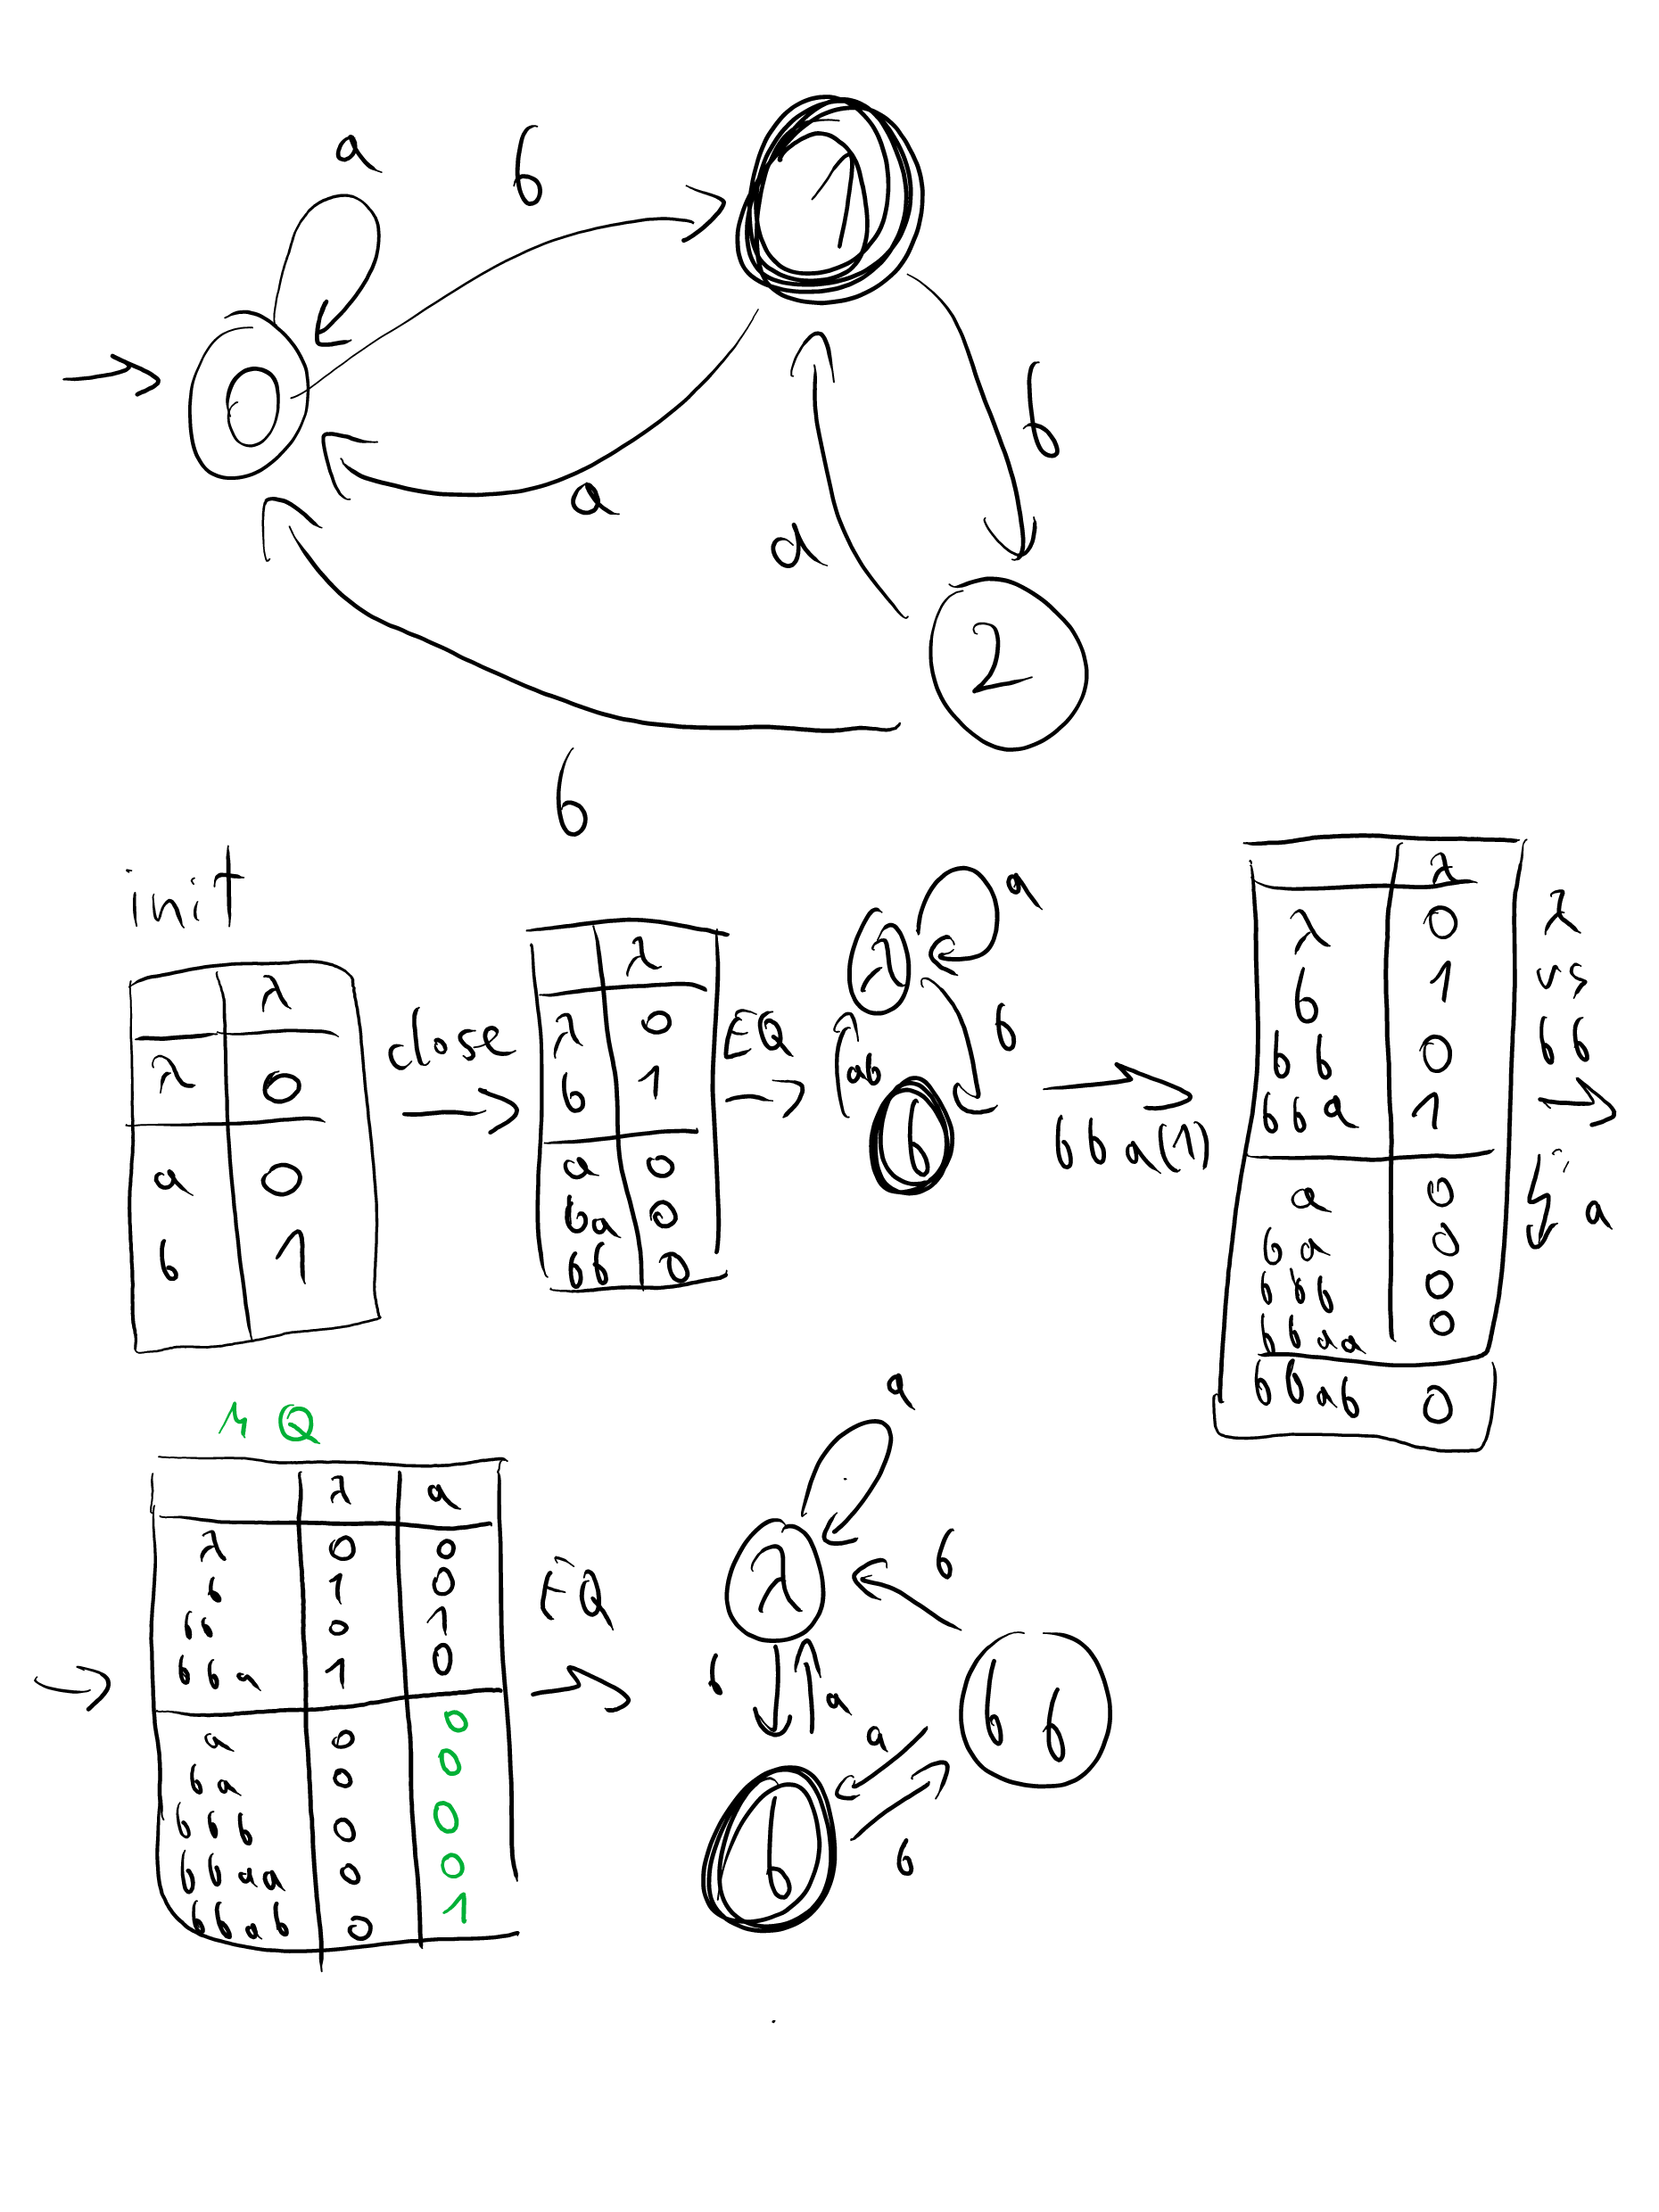 a
b
1
0
a
b
a
2
b
init
λ
λ 0
a 0
b 1
close
λ
λ 0
b 1
a 0
ba 0
bb 0
EQ
λ a
b
ab
b
bba(1)
λ
λ 0
b 1
bb 0
bba 1
a 0
ba 0
bbb 0
bbaa 0
bbab 0
λ
bb
a
MQ
λ a
λ 0 0
b 1 0
bb 0 1
bba 1 0
a 0 0
ba 0 0
bbb 0 0
bbaa 0 0
bbab 0 1
EQ
a
λ
b
b a
bb
a
b
b